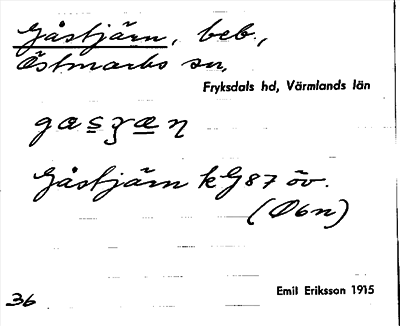 Gåstjärn, beb.,
Östmarks sn,
Fryksdals hd, Värmlands län
Gåstjärn kG87 öv.
(Ö6n)
Emil Eriksson 1915
36